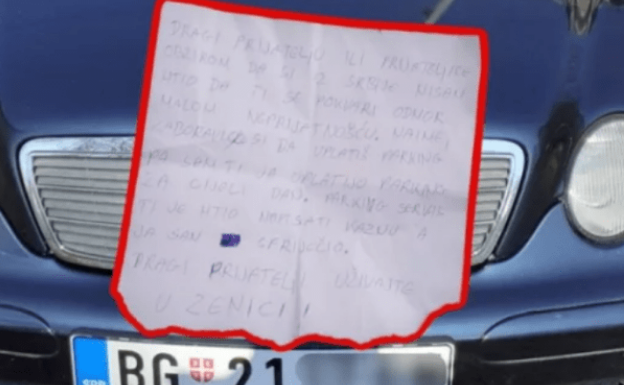 DRAGI PRIJATELJU ILI PRIJATELJICE
OBZIROM DA SI IZ SRBIJE NISAM
HTIO DA TI SE POKVARI ODMOR
MALOM NEPRIJATNOŠĆU. NAIME,
ZABORAVIO SI DA UPLATIŠ PARKING
PA SAM TI JA UPLATIO PARKING
ZA CIJELI DAN. PARKING SERVIS
TI JE HTIO NAPISATI KAZNU A
JA SAM SPRIJEČIO.
DRAGI PRIJATELJI UŽIVAJTE
U ZENICI!
BG 21
SRB